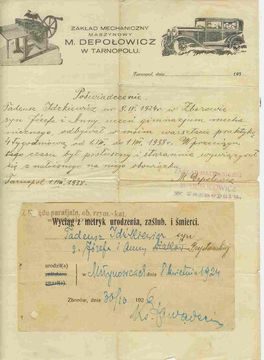 ZAKŁAD MECHANICZNY
MASZYNOWY
M. DEPOŁOWICZ
W TARNOPOLU.
Tarnopol, dnia 193
Poświadczenie
Tadeusz Idzikiewicz ur. 9.IV.1924 r. w Zborowie
syn Józefa i Anny uczeń gimnazjum mecha
nicznego, odbywał w moim warsztacie praktykę
4 tygodniową od 1.VII. do 1.VIII.1938 r. W przeciągu
tego czasu był pilny i starannie wywiązywał
się z nałożonego na niego obowiązku.
Tarnopol 1.VIII.1938.
w Tarnopolu
Z urzędu parafjaln. ob. rzym.-kat.
Wyciąg z metryk urodzenia, zaślub. i śmierci.
Tadeusz Idzikiewicz syn
Józefa i Anny
urodził(a)
w Młynowcach 7 kwietnia 1924
Zborów, dnia 30/10 192